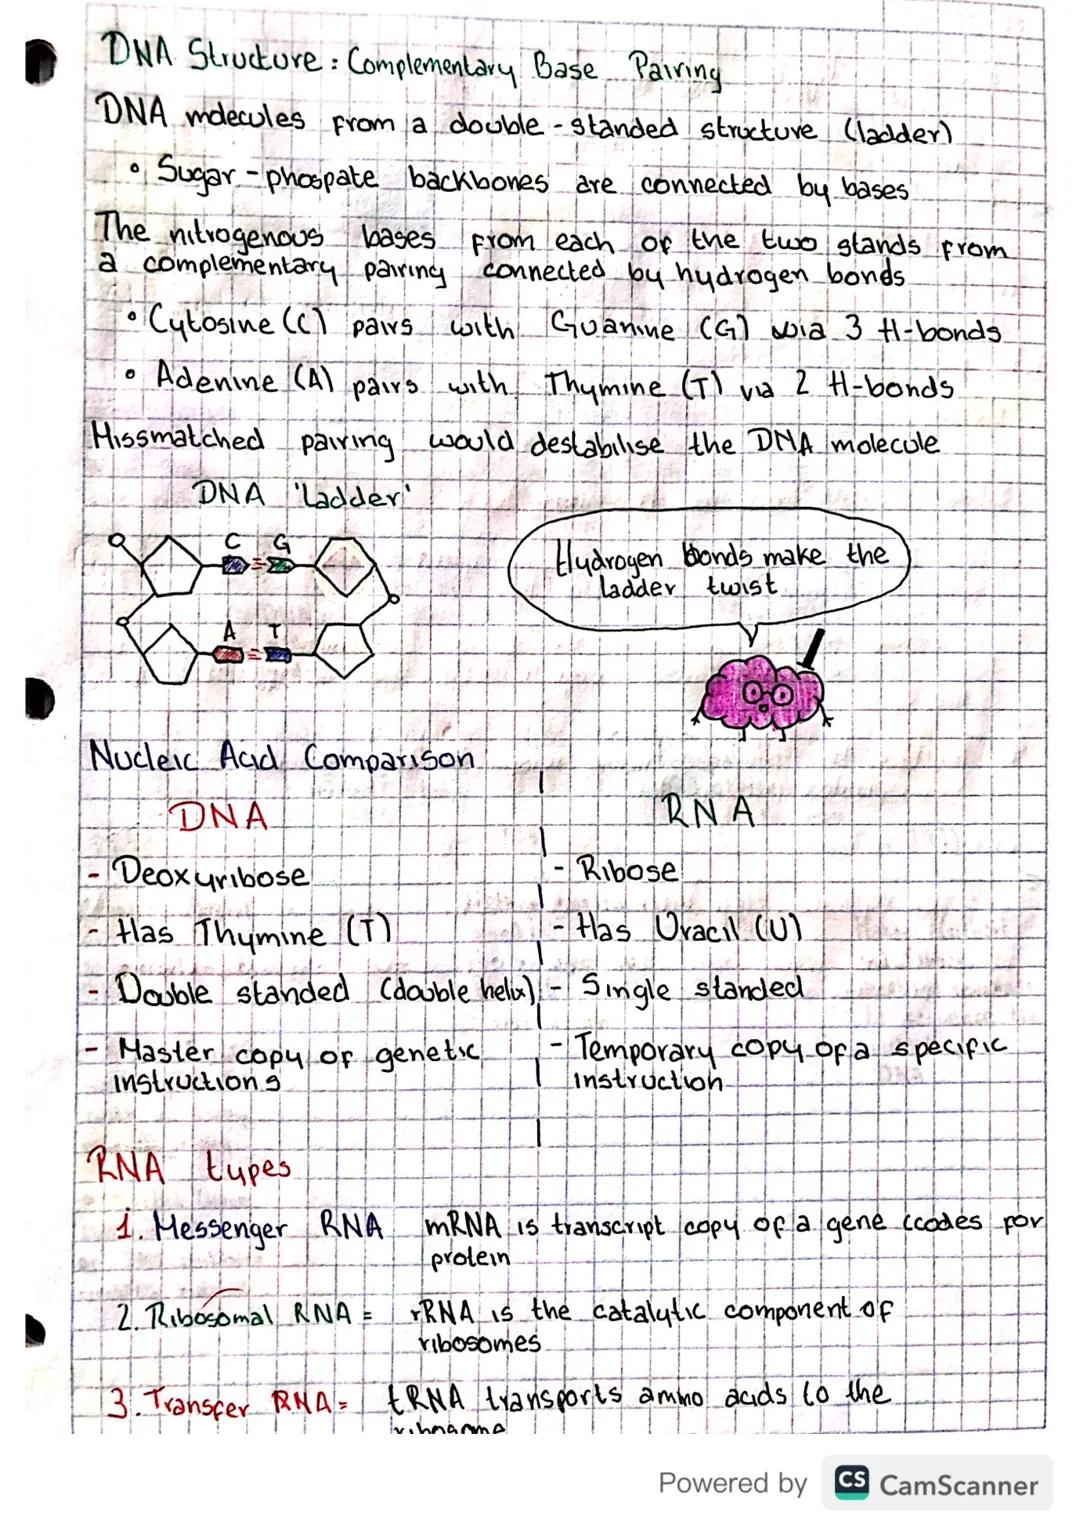 DNA Structure : Complementary Base Pairing
DNA molecules from a double - standed structure (ladder)
• Sugar - phospate backbones are connected by bases
The nitrogenous bases from each of the two stands from
a complementary pairing connected by hydrogen bonds
• Cytosine (C) pairs with Guanine (G) via 3 H-bonds
• Adenine (A) pairs with Thymine (T) via 2 H-bonds
Missmatched pairing would destabilise the DNA molecule
DNA 'Ladder'
C G
A T
Hydrogen bonds make the
ladder twist
Nucleic Acid Comparison
DNA
RNA
- Deoxyribose
- Ribose
- Has Thymine (T)
- Has Uracil (U)
- Double standed (double helix)
- Single standed
- Master copy of genetic
instructions
- Temporary copy of a specific
instruction
RNA types
1. Messenger RNA mRNA is transcript copy of a gene (codes for
protein
2. Ribosomal RNA = rRNA is the catalytic component of
ribosomes
3. Transfer RNA = tRNA transports amino acids to the
ribosome
Powered by CS CamScanner